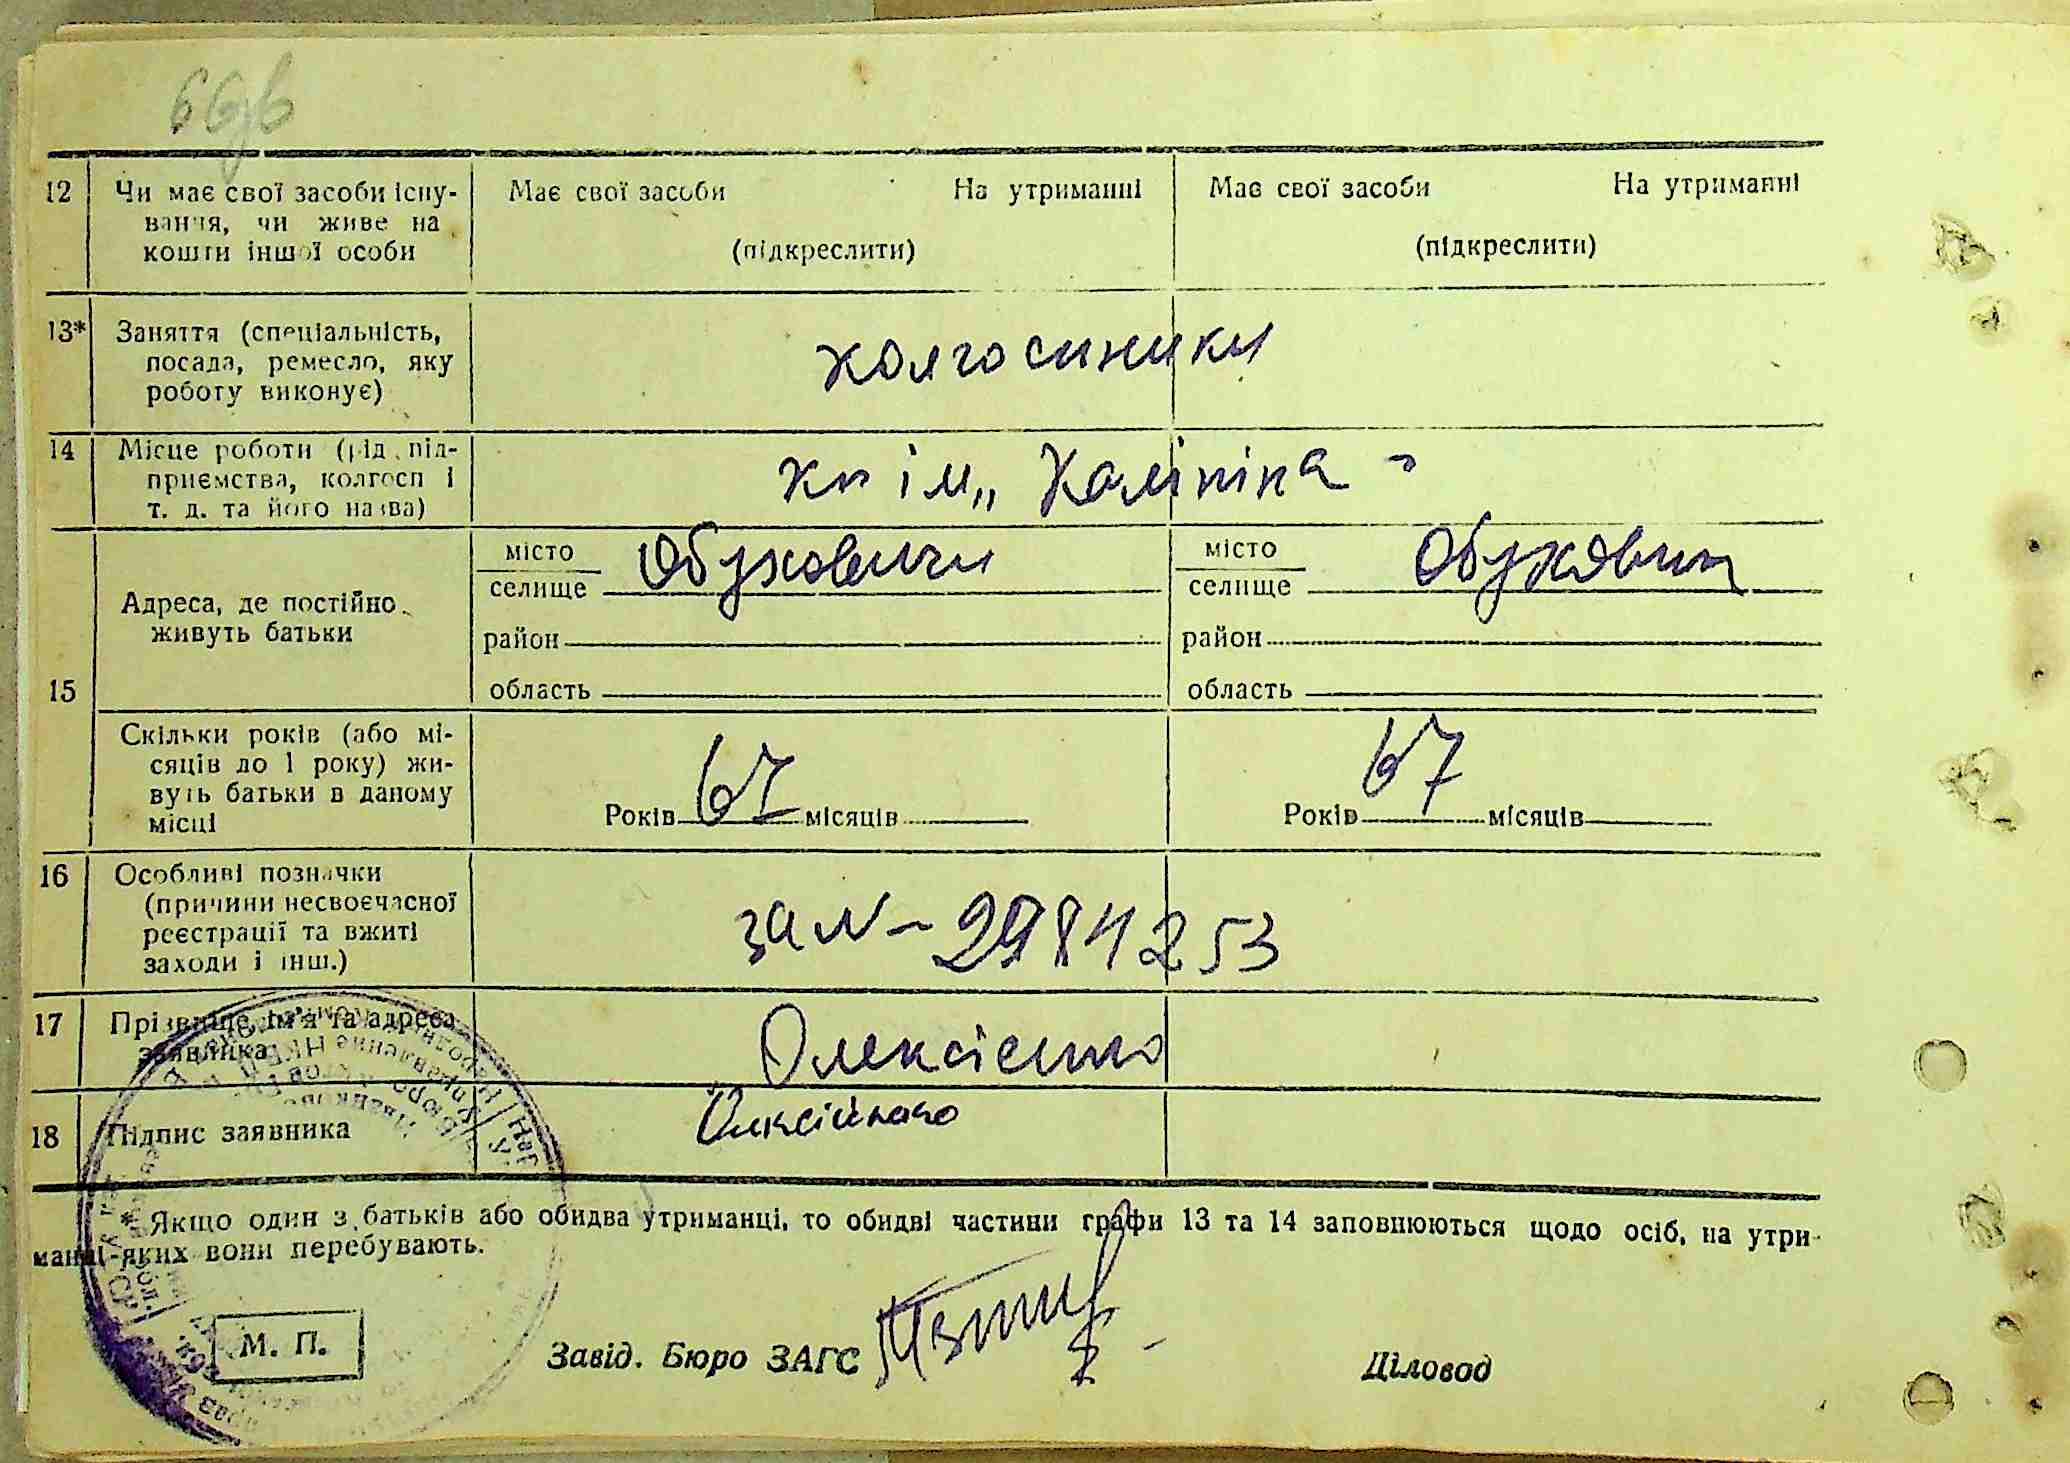 66
12 Чи має свої засоби існу- Має свої засоби На утриманні Має свої засоби На утриманні
вання, чи живе на
кошти іншої особи (підкреслити) (підкреслити)
13* Заняття (спеціальність,
посада, ремесло, яку колгоспники
роботу виконує)
14 Місце роботи (рід під-
приємства, колгосп і кп ім „Калініна"
т. д. та його назва)
15 Адреса, де постійно
живуть батьки
місто Обуховичи місто Обуховичи
селище селище
район район
область область
Скільки років (або мі-
сяців до 1 року) жи-
вуть батьки в даному
місці
Років 67 місяців Років 67 місяців
16 Особливі позначки
(причини несвоєчасної
реєстрації та вжиті за № 2984253
заходи і інш.)
17 Прізвище, ім'я та адреса
заявника Олексієнко
18 Підпис заявника Олксійнко
* Якщо один з батьків або обидва утриманці, то обидві частини графи 13 та 14 заповнюються щодо осіб, на утри-
манні яких вони перебувають.
М. П. Завід. Бюро ЗАГС Діловод